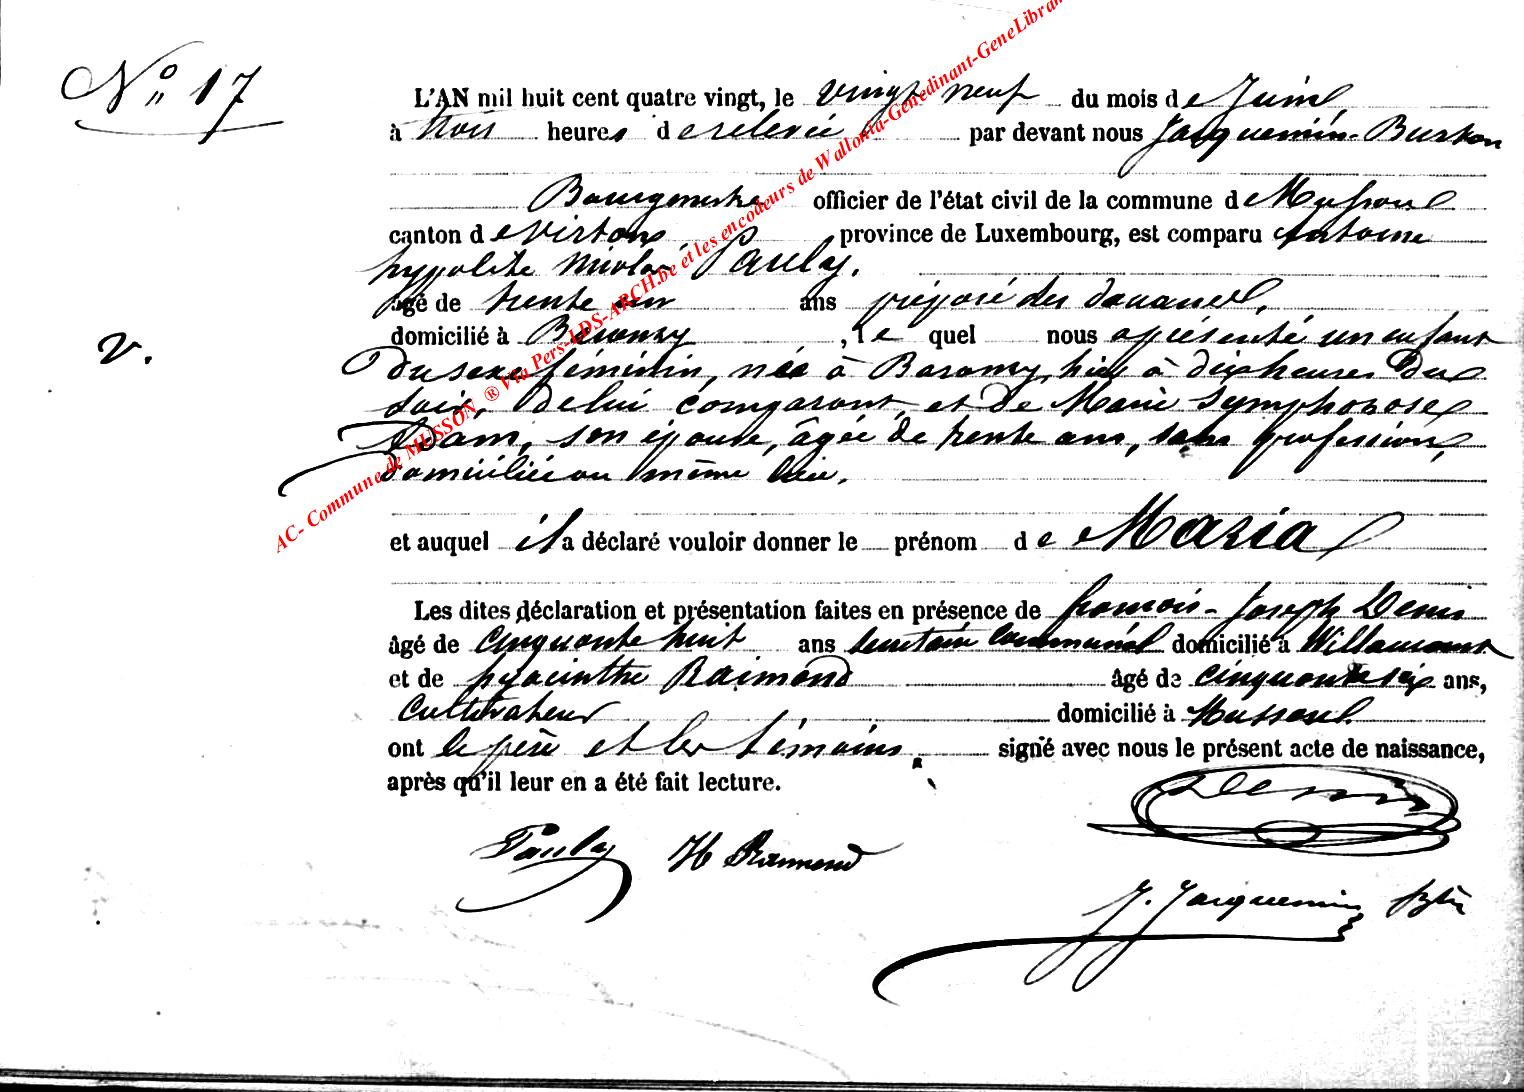 N° 17
L'AN mil huit cent quatre vingt, le vingt neuf du mois de Juin
à trois heures de relevée par devant nous Jacquemin-Burton
Bourgmestre officier de l'état civil de la commune de Musson
canton de Virton province de Luxembourg, est comparu Antoine
hypolite Nicolas Pauly.
agé de trente un ans préposé des douanes,
domicilié à Baranzy, le quel nous a présenté un enfant
v.
du sexe féminin, née à Baranzy, hier à dix heures du
soir, de lui comparant, et de Marie Symphorose
Adam, son épouse, âgée de trente ans, sans profession,
domiciliée au même lieu.
et auquel il a déclaré vouloir donner le prénom de Maria
Les dites déclaration et présentation faites en présence de françois-Joseph Denis
âgé de cinquante huit ans secrétaire communal domicilié à Willancourt
et de hyacinthe Raimond âgé de cinquante six ans,
Cultivateur domicilié à Musson.
ont le père et les témoins signé avec nous le présent acte de naissance,
après qu'il leur en a été fait lecture.
Denis
Pauly H Raimond
J. Jacquemin
AC- Commune de MUSSON ® Via Pers-LDS-ARCH.be et les encodeurs de Wallonia-Genedinant-GeneLibra